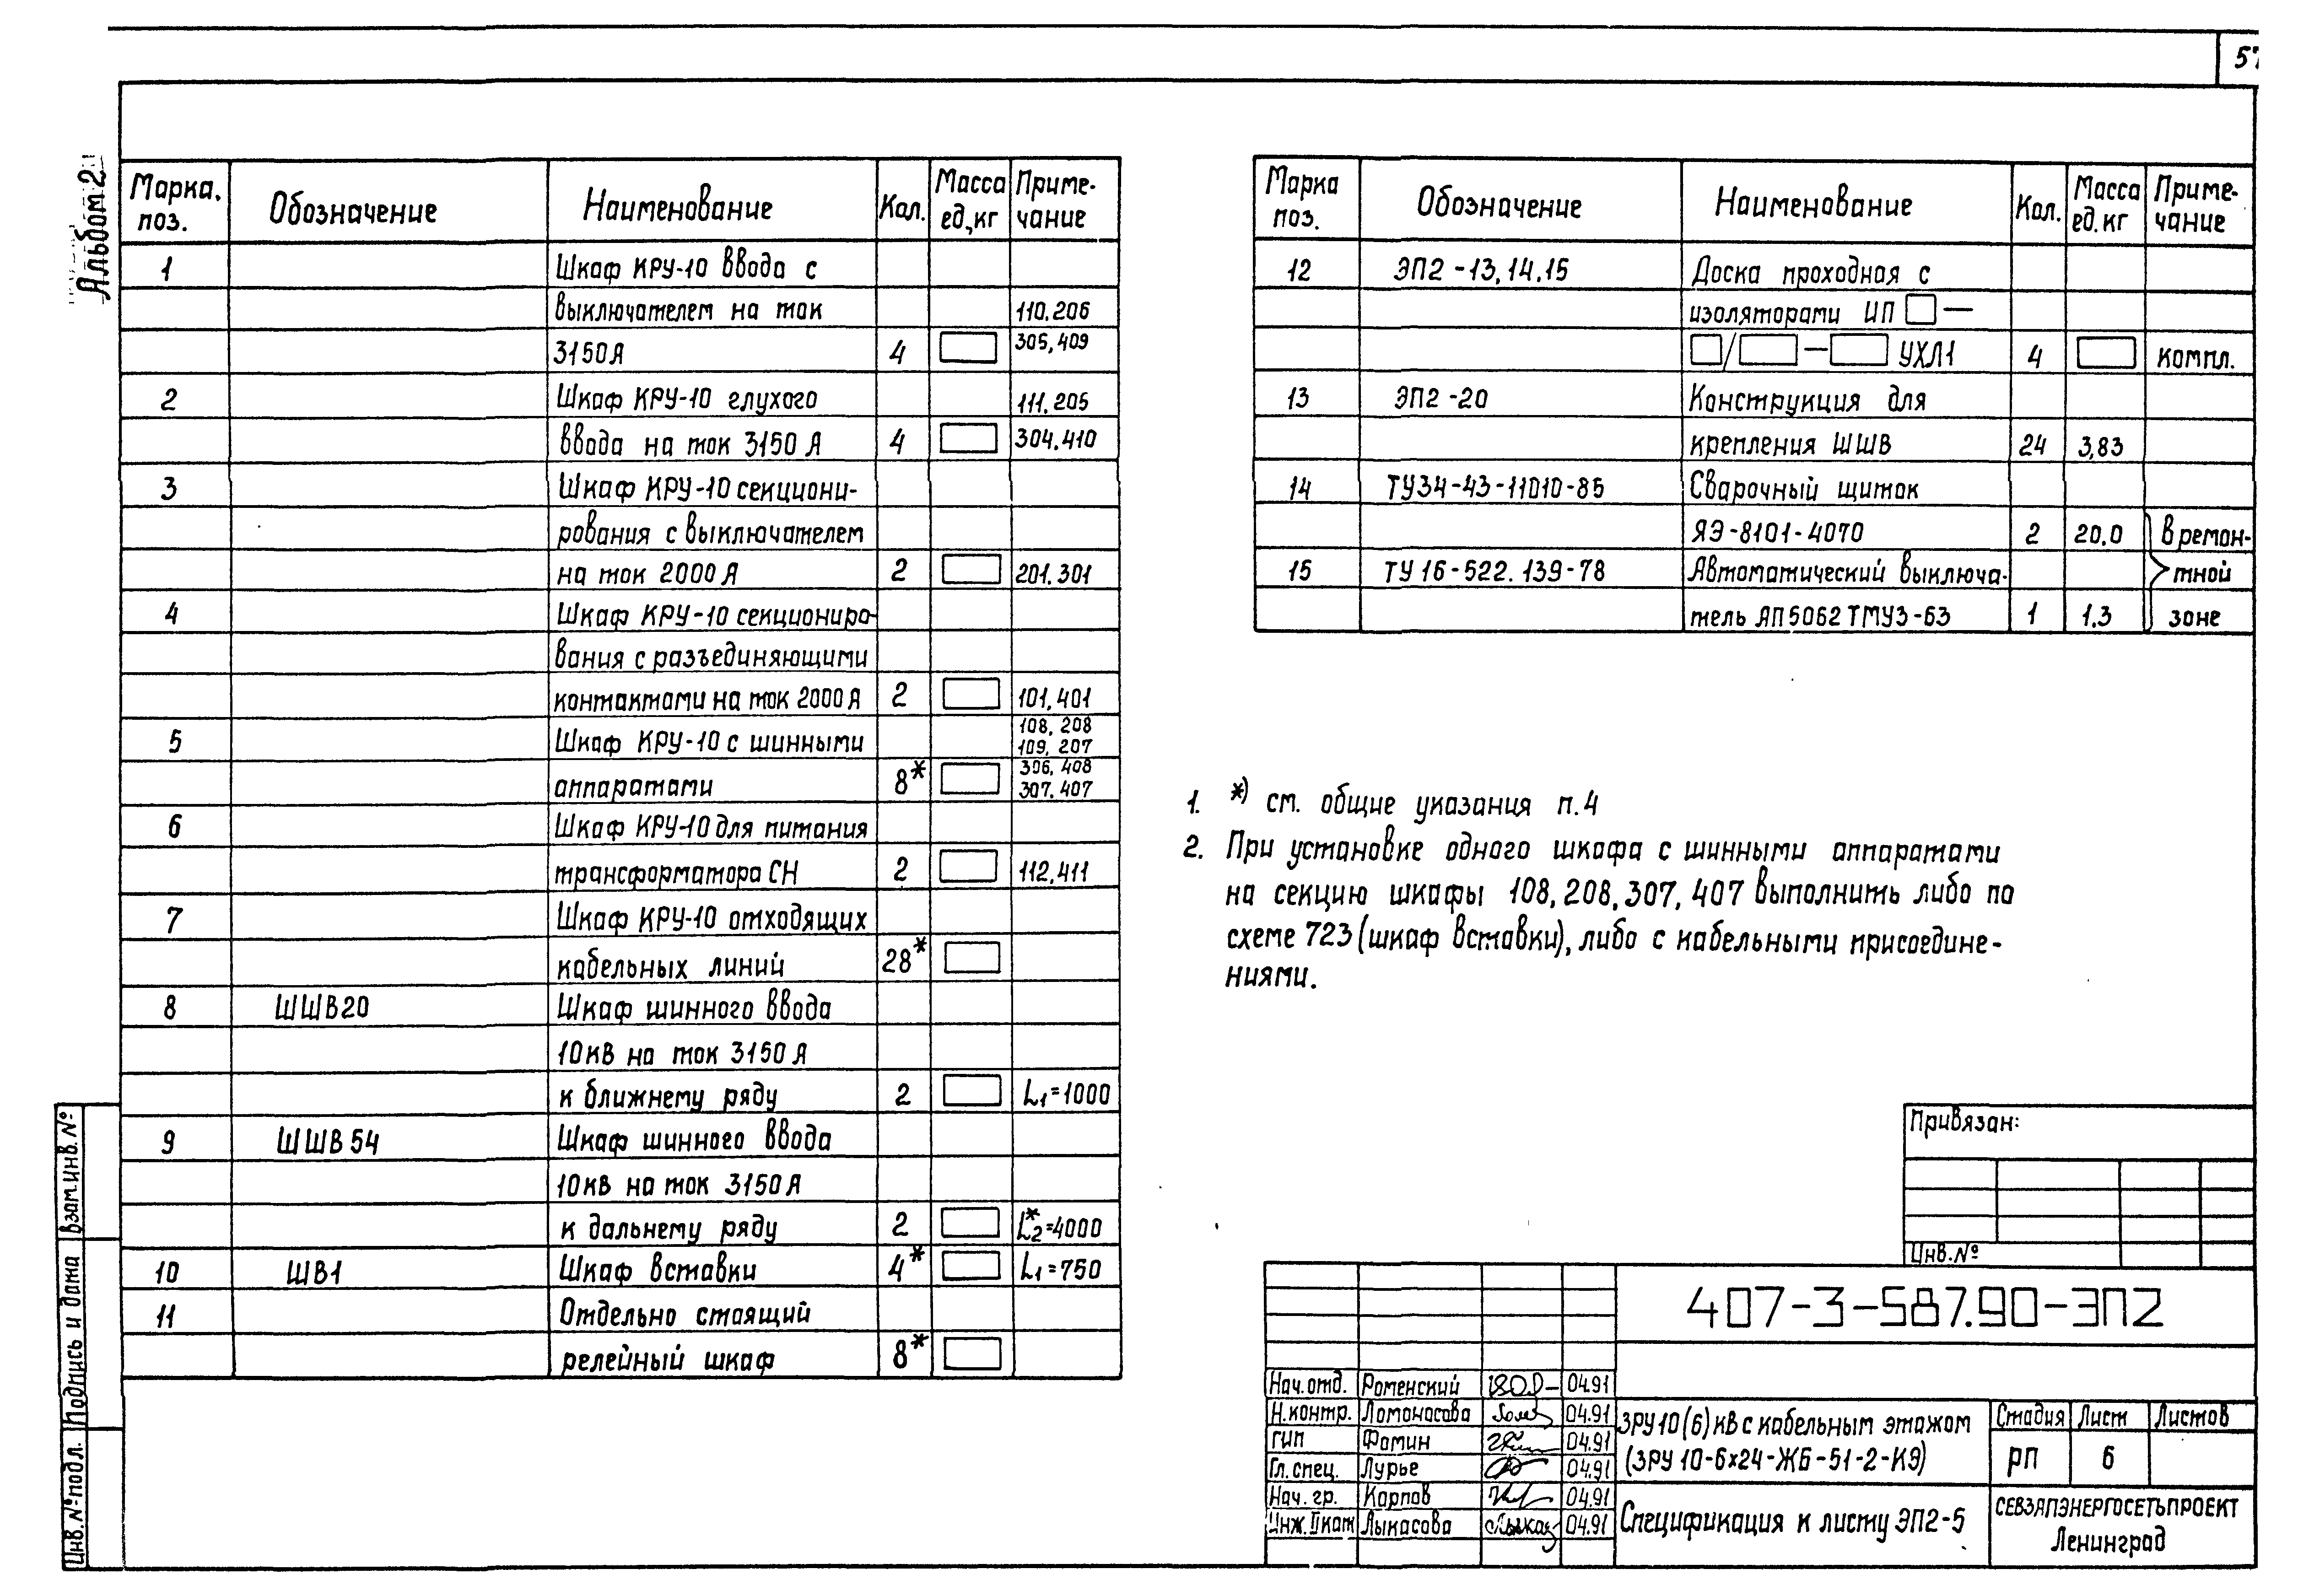 57
Альбом 2
Марка, поз. Обозначение Наименование Кол. Масса ед,кг Приме-чание
1 Шкаф КРУ-10 ввода с
выключателем на ток 110,206
3150А 4 305,409
2 Шкаф КРУ-10 глухого 111,205
ввода на ток 3150 А 4 304,410
3 Шкаф КРУ-10 секциони-
рования с выключателем
на ток 2000 А 2 201,301
4 Шкаф КРУ-10 секциониро-
вания с разъединяющими
контактами на ток 2000 А 2 101,401
5 Шкаф КРУ-10 с шинными 108, 208
109, 207
аппаратами 8* 306, 408
307, 407
6 Шкаф КРУ-10 для питания
трансформатора СН 2 112,411
7 Шкаф КРУ-10 отходящих
кабельных линий 28*
8 ШШВ20 Шкаф шинного ввода
10кВ на ток 3150 А
к ближнему ряду 2 L1=1000
9 ШШВ54 Шкаф шинного ввода
10кВ на ток 3150 А
к дальнему ряду 2 L2*=4000
10 ШВ1 Шкаф вставки 4* L1=750
11 Отдельно стоящий
релейный шкаф 8*
Марка поз. Обозначение Наименование Кол. Масса ед.кг Приме-чание
12 ЭП2-13,14,15 Доска проходная с
изоляторами ИП □ —
□/□—□ УХЛ1 4 компл.
13 ЭП2-20 Конструкция для
крепления ШШВ 24 3,83
14 ТУ34-43-11010-85 Сварочный щиток
ЯЭ-8101-4070 2 20,0 в ремон-
15 ТУ16-522.139-78 Автоматический выключа- тной
тель АП5062ТМУ3-63 1 1,3 зоне
1. *) см. общие указания п.4
2. При установке одного шкафа с шинными аппаратами
на секцию шкафы 108,208,307,407 выполнить либо по
схеме 723 (шкаф вставки), либо с кабельными присоедине-
ниями.
Привязан:
Инв.№
407-3-587.90-ЭП2
Нач.отд. Роменский 04.91
Н.контр. Ломоносова 04.91
ГИП Фомин 04.91
Гл.спец. Лурье 04.91
Нач. гр. Карпов 04.91
Инж.IIкат Лыкасова 04.91
ЗРУ10(6)кВ с кабельным этажом
(ЗРУ 10-6х24-ЖБ-51-2-КЭ)
Стадия Лист Листов
РП 6
Спецификация к листу ЭП2-5
СЕВЗАПЭНЕРГОСЕТЬПРОЕКТ
Ленинград
Взам.инв.№
Подпись и дата
Инв.№подл.